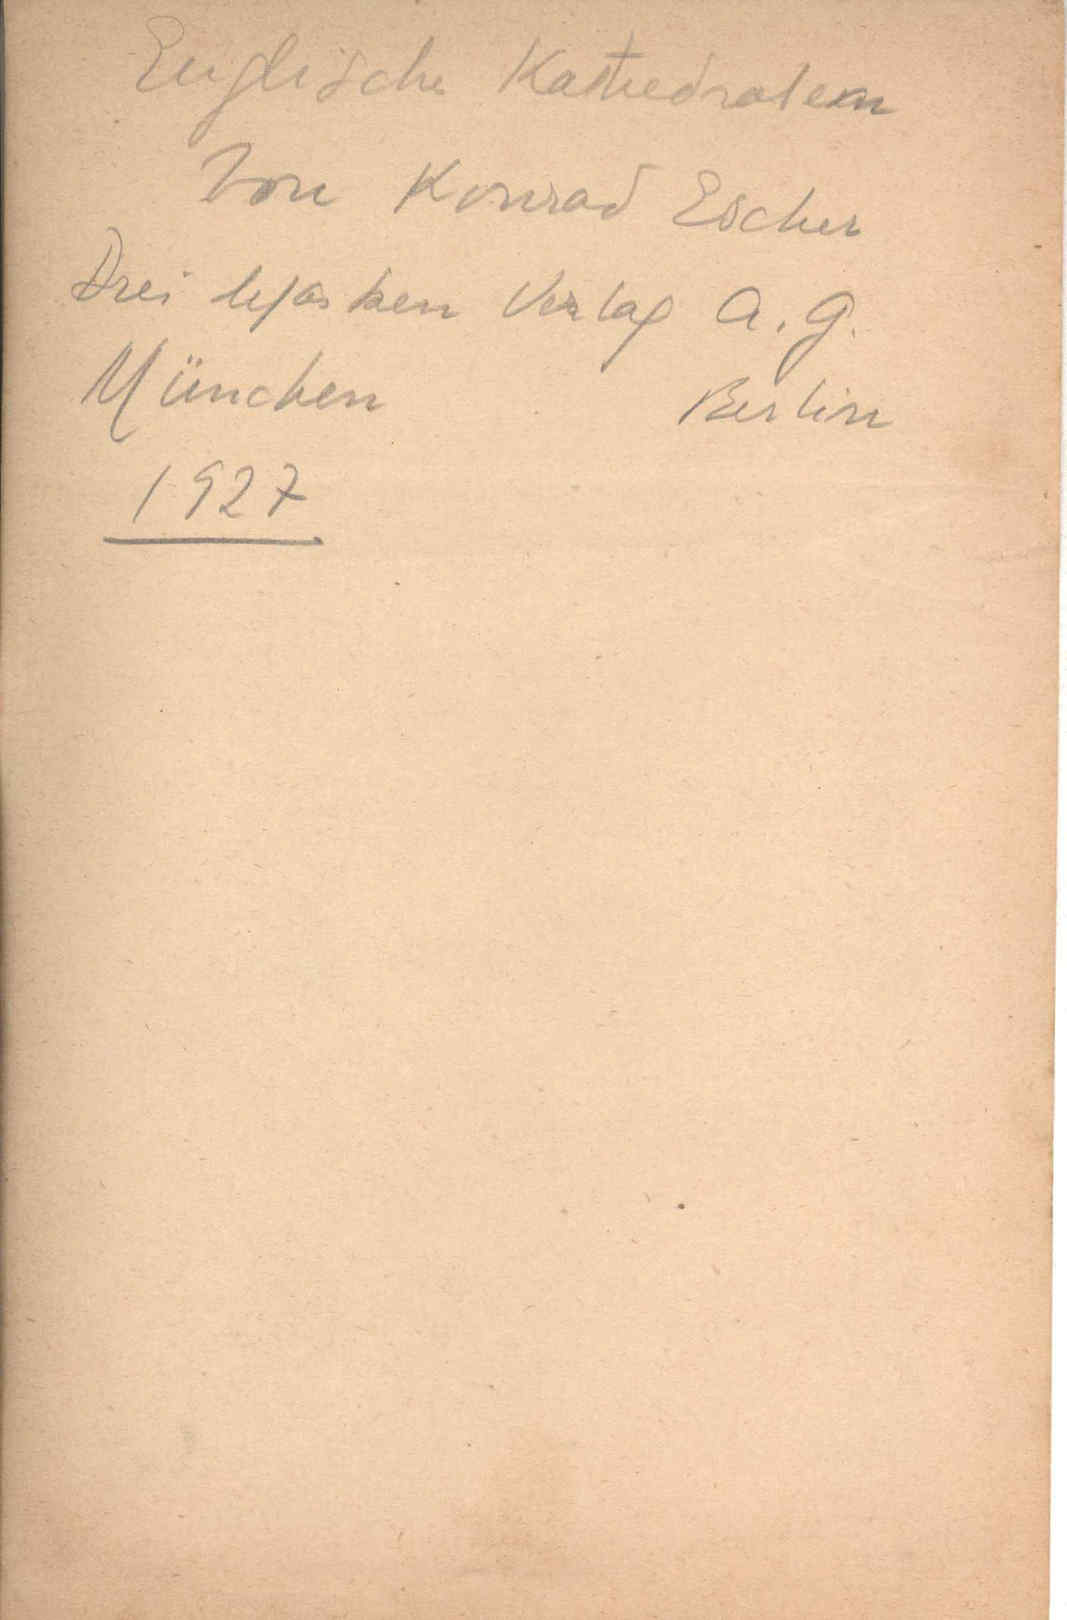 Englische Kathedralen
Von Konrad Escher
Drei Masken Verlag A. G.
München Berlin
1927